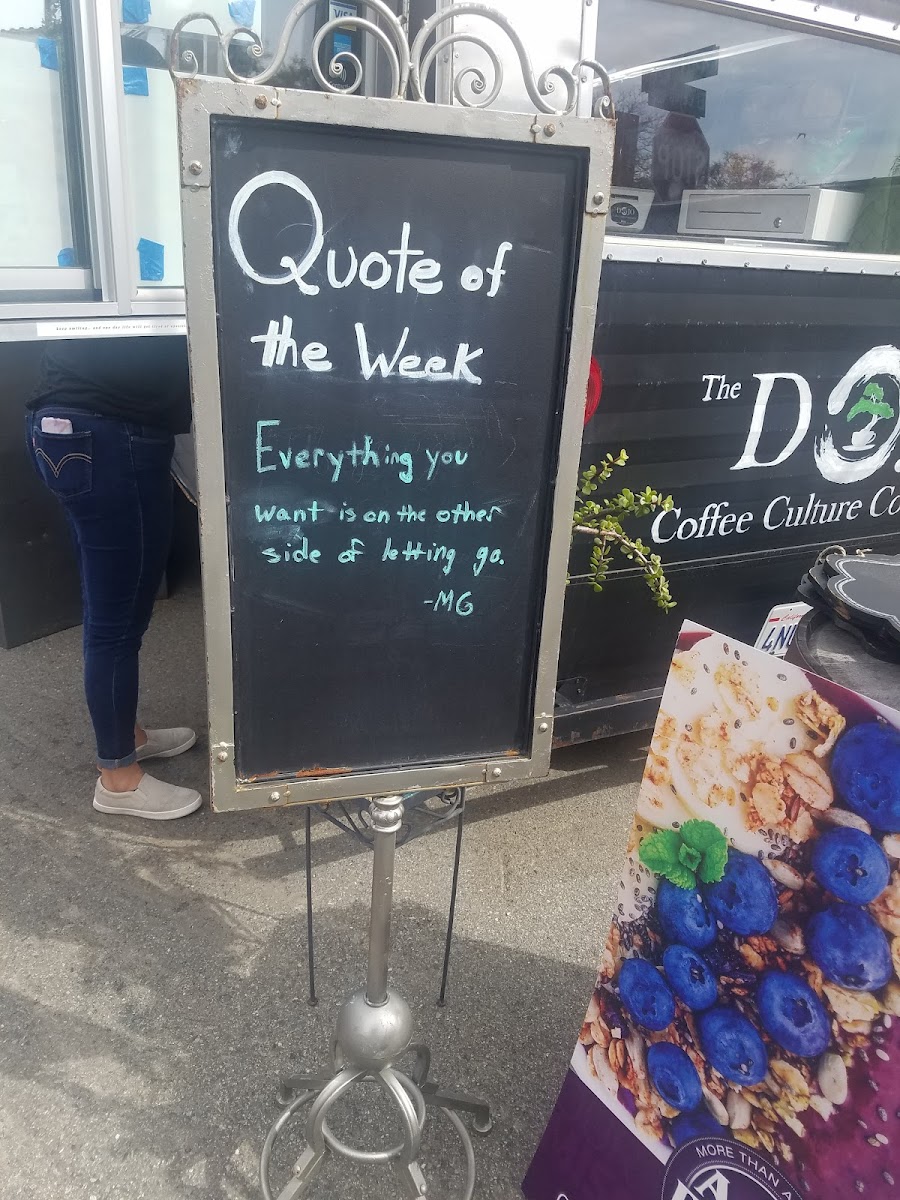 VISA
Quote of
the Week
Everything you
want is on the other
side of letting go.
-MG
STOP
The
DO
Coffee Culture Co
4NU
MORE THAN A